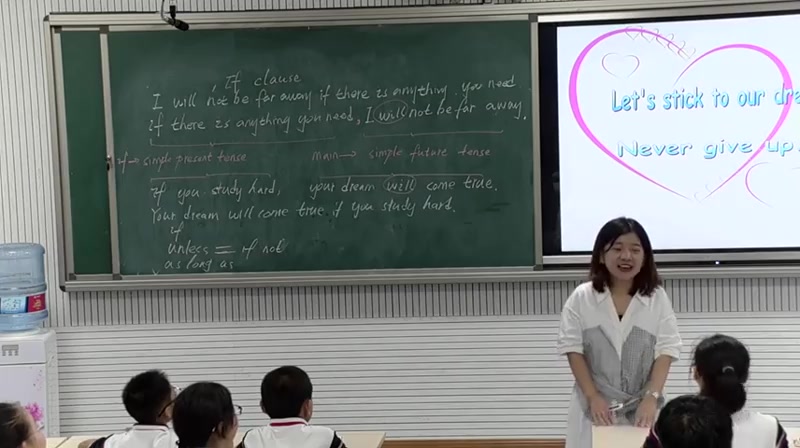 If clause
I will not be far away if there is anything you need.
if there is anything you need, I will not be far away.
if → simple present tense main → simple future tense
If you study hard, your dream will come true.
Your dream will come true if you study hard.
if
unless = if not
as long as
Let's stick to our dre
Never give up.